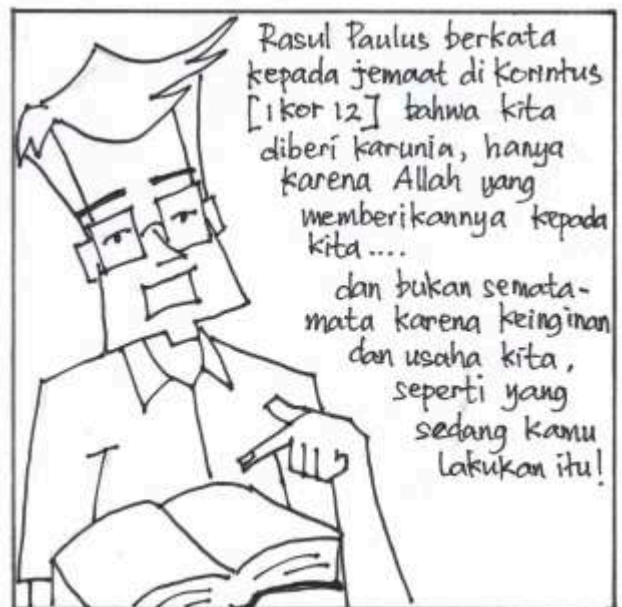 Rasul Paulus berkata
kepada jemaat di Korintus
[1 kor 12] bahwa kita
diberi karunia, hanya
karena Allah yang
memberikannya kepada
kita....
dan bukan semata-
mata karena keinginan
dan usaha kita,
seperti yang
sedang kamu
lakukan itu!